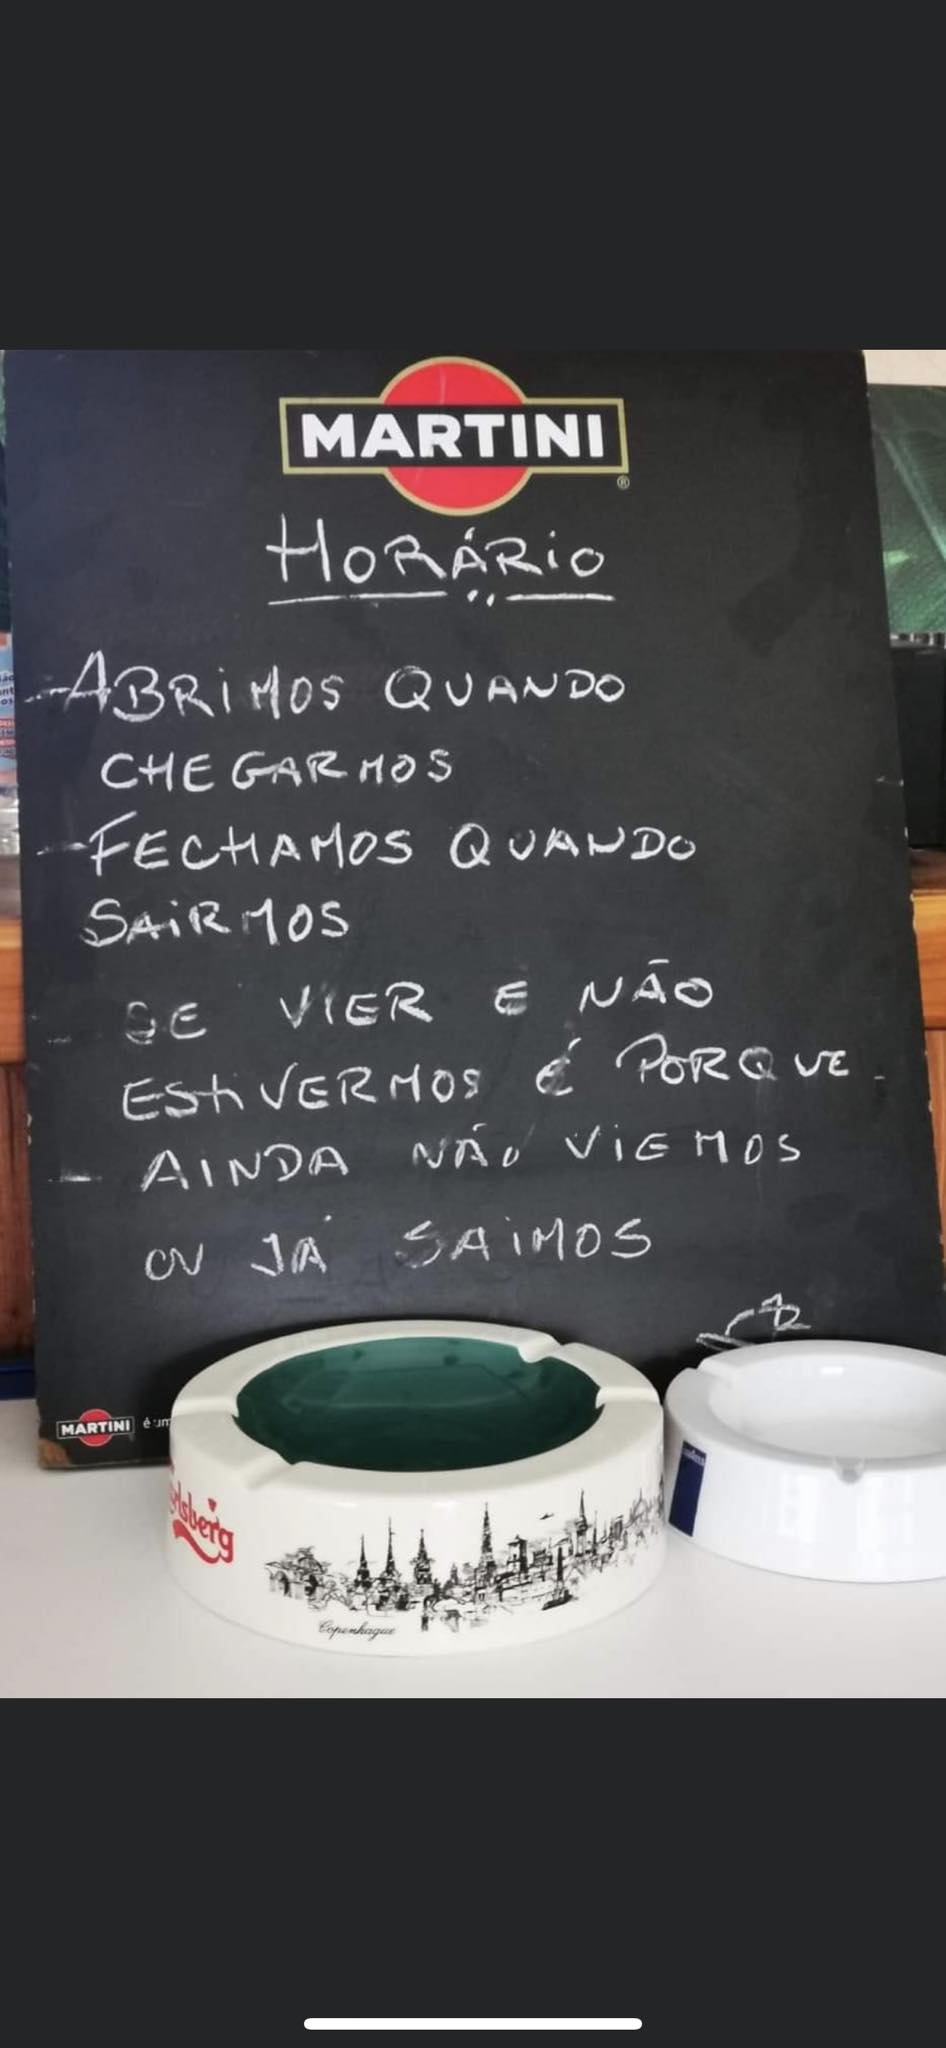 MARTINI
®
HORÁRIO
- ABRIMOS QUANDO
CHEGARMOS
- FECHAMOS QUANDO
SAIRMOS
- SE VIER E NÃO
ESTIVERMOS É PORQUE
- AINDA NÃO VIEMOS
OU JÁ SAIMOS
MARTINI é um
Carlsberg
Copenhague